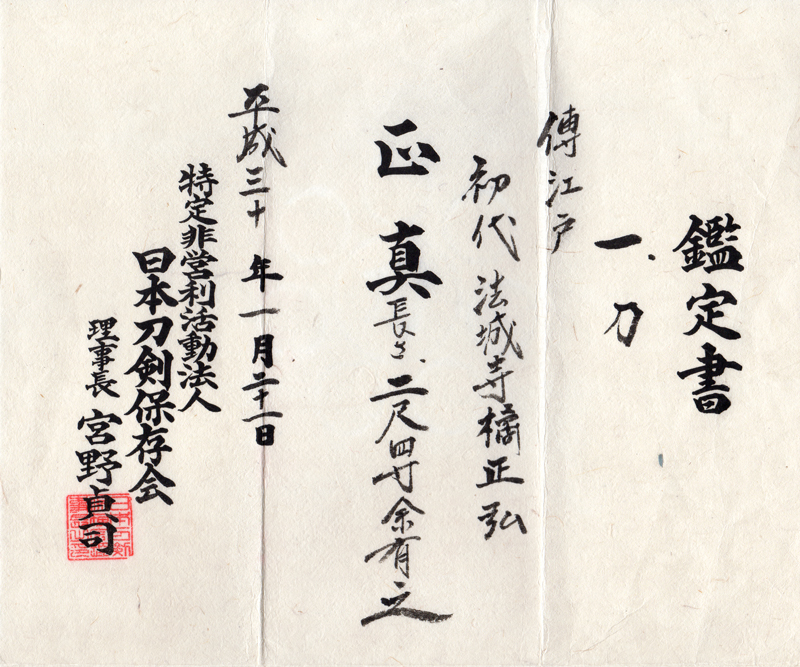 鑑定書
一、刀
傳江戸
初代法城寺橘正弘
正真
長さ、二尺四寸余有之
平成三十年一月二十一日
特定非営利活動法人
日本刀剣保存会
理事長 宮野貞司